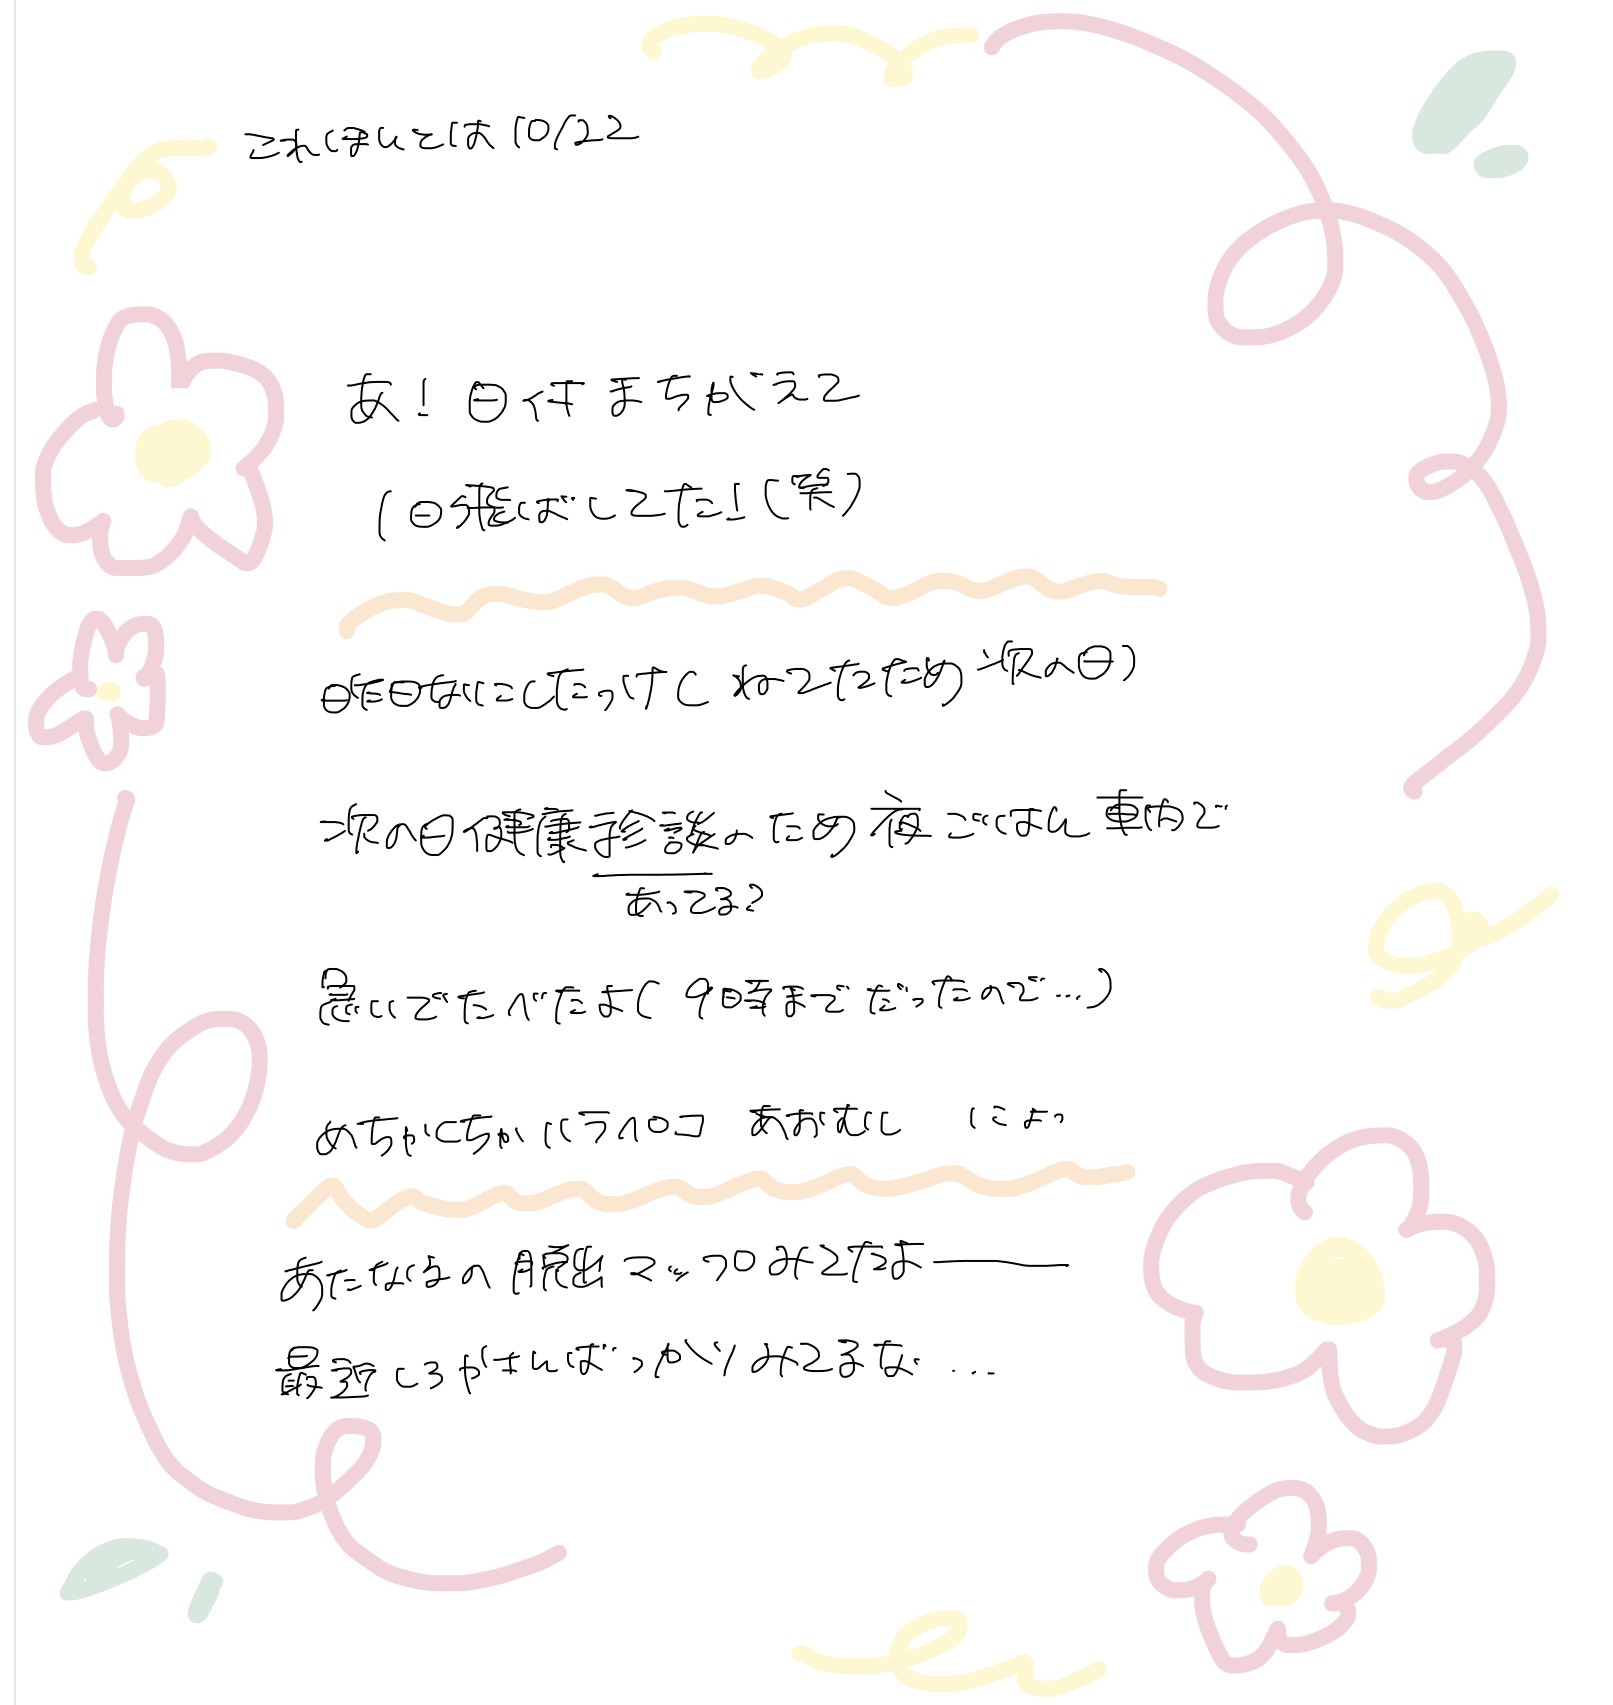 これほんとは10/22
あ！日付まちがえて
1日飛ばしてた！(笑)
昨日なにしたっけ(ねてたため次の日)
次の日健康診談のため夜ごはん車内で
あってる？
急いでたべたよ(9時までだったので…)
めちゃくちゃハラペコ あおむし にょっ
あたなるの脱出マップみてたよー
最近しろがさんばっかりみてるな…